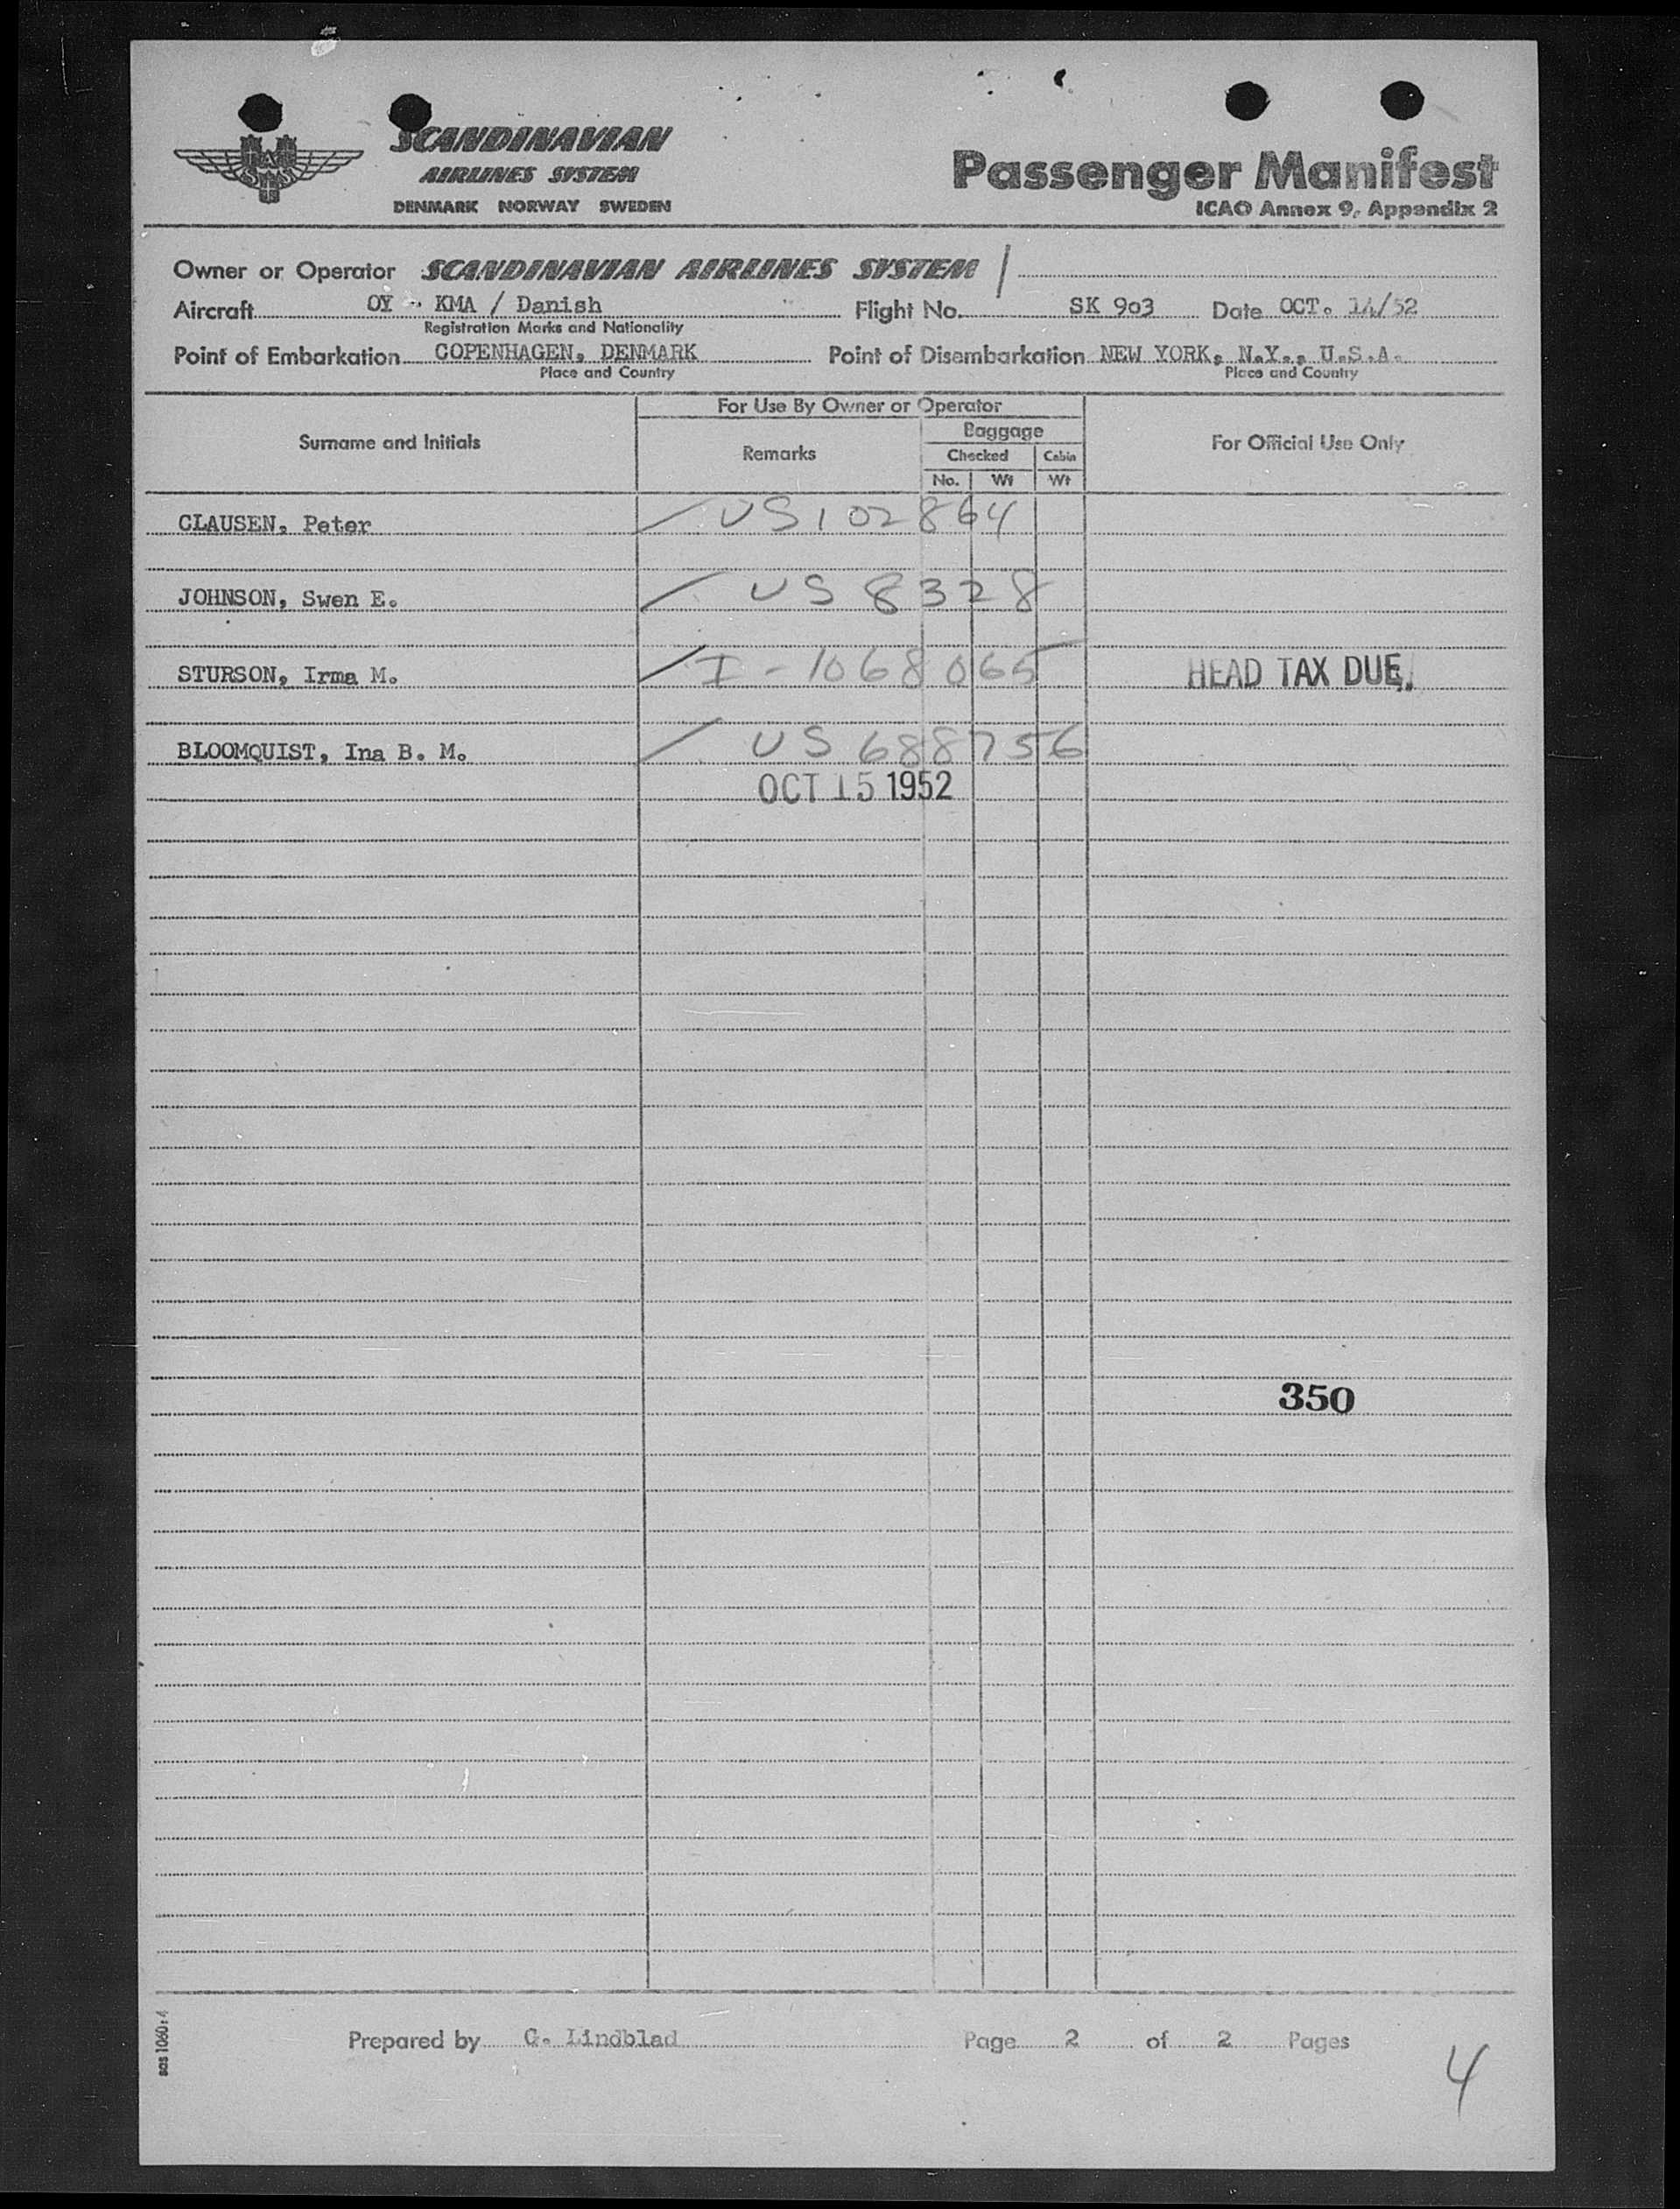 SCANDINAVIAN
AIRLINES SYSTEM
DENMARK NORWAY SWEDEN
Passenger Manifest
ICAO Annex 9, Appendix 2
Owner or Operator SCANDINAVIAN AIRLINES SYSTEM /
Aircraft OY - KMA / Danish Flight No. SK 903 Date OCT. 14/52
Registration Marks and Nationality
Point of Embarkation COPENHAGEN, DENMARK Point of Disembarkation NEW YORK, N.Y., U.S.A.
Place and Country Place and Country
For Use By Owner or Operator
Surname and Initials Remarks Baggage For Official Use Only
Checked Cabin
No. Wt Wt
CLAUSEN, Peter / US 102864
JOHNSON, Swen E. / US 8328
STURSON, Irma M. / I-1068065 HEAD TAX DUE.
BLOOMQUIST, Ina B. M. / US 688756
OCT 15 1952
350
sas 1060:4
Prepared by G. Lindblad Page 2 of 2 Pages
4